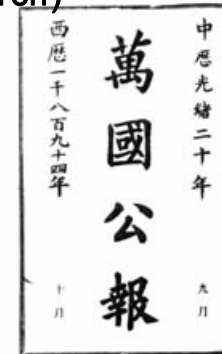 中厯光緒二十年
九月
萬國公報
西厯一千八百九十四年
十月